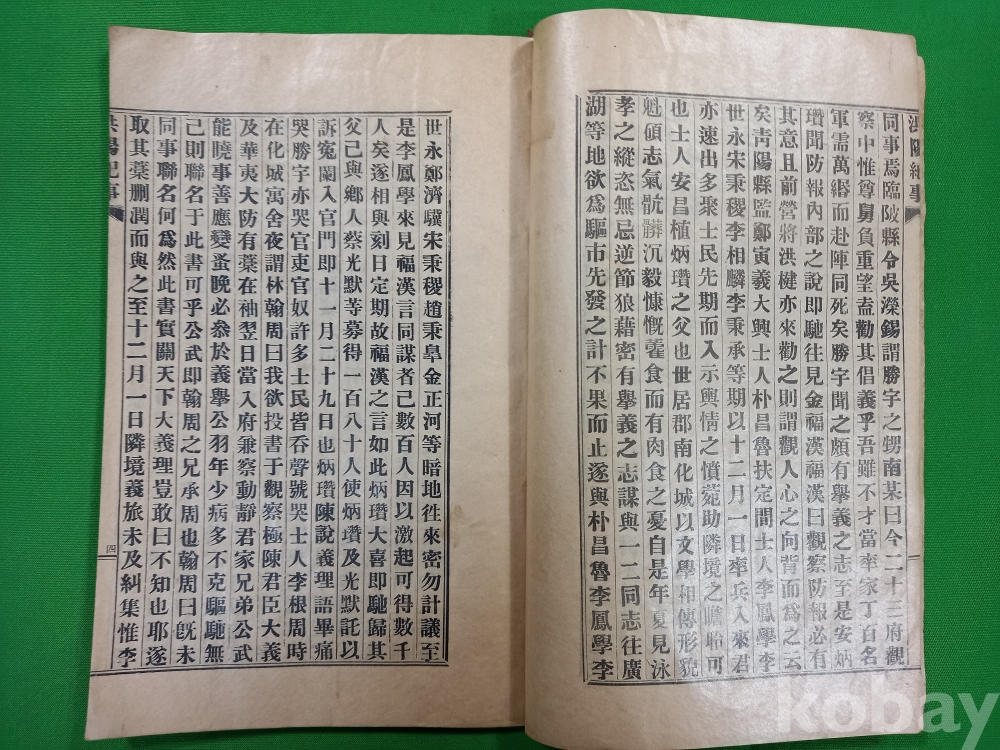 洪陽紀事
同事焉臨陂縣令吳濴錫謂勝宇之甥南某曰今二十三府觀
察中惟尊舅負重望盍勸其倡義乎吾雖不才當率家丁百名
軍需萬緡而赴陣同死矣勝宇聞之頗有舉義之志至是安炳
瓚聞防報內部之說即馳往見金福漢福漢曰觀察防報必有
其意且前營將洪楗亦來勸之則謂觀人心之向背而爲之云
矣靑陽縣監鄭寅羲大興士人朴昌魯扶定間士人李鳳學李
世永宋秉稷李相麟李秉承等期以十二月一日率兵入來君
亦速出多聚士民先期而入示輿情之憤菀助隣境之瞻聆可
也士人安昌植炳瓚之父也世居郡南化城以文學相傳形貌
魁碩志氣骯髒沉毅慷慨藿食而有肉食之憂自是年夏見泳
孝之縱恣無忌逆節狼藉密有舉義之志謀與一二同志往廣
湖等地欲爲驅市先發之計不果而止遂與朴昌魯李鳳學李
世永鄭濟驥宋秉稷趙秉皐金正河等暗地徃來密勿計議至
是李鳳學來見福漢言同謀者已數百人因以激起可得數千
人矣遂相與刻日定期故福漢之言如此炳瓚大喜即馳歸其
父已與鄉人蔡光默等募得一百八十人使炳瓚及光默託以
訴寃闌入官門即十一月二十九日也炳瓚陳說義理語畢痛
哭勝宇亦哭官吏官奴許多士民皆吞聲號哭士人李根周時
在化城寓舍夜謂林翰周曰我欲投書于觀察極陳君臣大義
及華夷大防有藁在袖翌日當入府兼察動靜君家兄弟公武
能曉事善應變蚤晚必叅於義舉公羽年少病多不克驅馳無
己則聯名于此書可乎公武即翰周之兄承周也翰周曰旣未
同事聯名何爲然此書實關天下大義理豈敢曰不知也耶遂
取其藁刪潤而與之至十二月一日隣境義旅未及糾集惟李
洪陽紀事
四
kobay